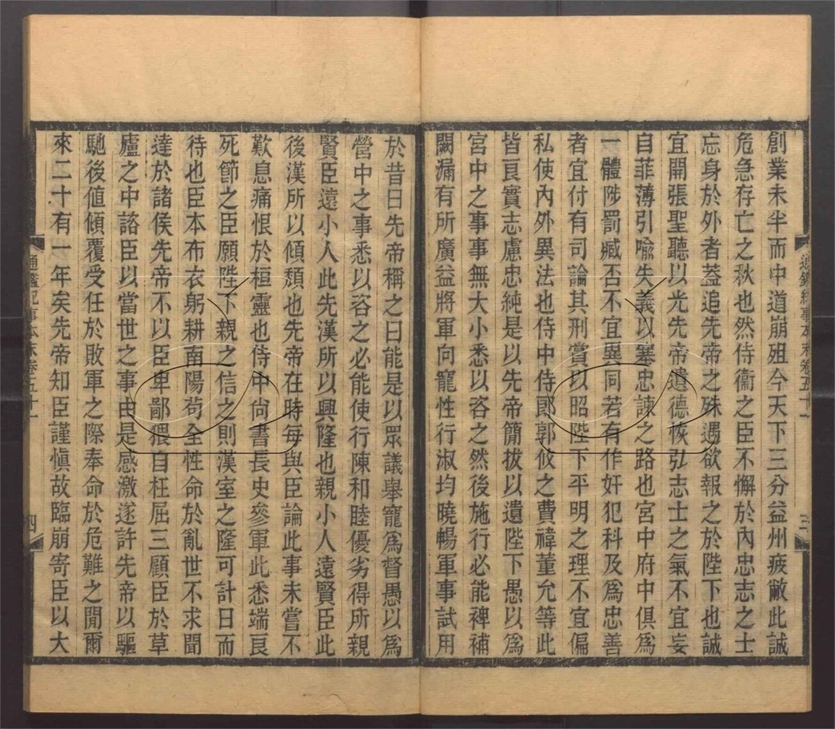 創業未半而中道崩殂今天下三分益州疲敝此誠
危急存亡之秋也然侍衛之臣不懈於內忠志之士
忘身於外者蓋追先帝之殊遇欲報之於陛下也誠
宜開張聖聽以光先帝遺德恢弘志士之氣不宜妄
自菲薄引喻失義以塞忠諫之路也宮中府中俱爲
一體陟罰臧否不宜異同若有作奸犯科及爲忠善
者宜付有司論其刑賞以昭陛下平明之理不宜偏
私使內外異法也侍中侍郎郭攸之費禕董允等此
皆良實志慮忠純是以先帝簡拔以遺陛下愚以爲
宮中之事事無大小悉以咨之然後施行必能裨補
闕漏有所廣益將軍向寵性行淑均曉暢軍事試用
通鑑紀事本末卷五十一
三
於昔日先帝稱之曰能是以眾議舉寵爲督愚以爲
營中之事悉以咨之必能使行陳和睦優劣得所親
賢臣遠小人此先漢所以興隆也親小人遠賢臣此
後漢所以傾頹也先帝在時每與臣論此事未嘗不
歎息痛恨於桓靈也侍中尙書長史參軍此悉端良
死節之臣願陛下親之信之則漢室之隆可計日而
待也臣本布衣躬耕南陽苟全性命於亂世不求聞
達於諸侯先帝不以臣卑鄙猥自枉屈三顧臣於草
廬之中諮臣以當世之事由是感激遂許先帝以驅
馳後值傾覆受任於敗軍之際奉命於危難之閒爾
來二十有一年矣先帝知臣謹愼故臨崩寄臣以大
通鑑紀事本末卷五十一
四